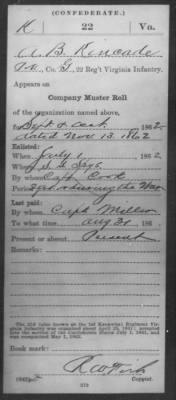 (CONFEDERATE.)
K 22 Va.
A. B. Kincade
Co. G, 22 Reg't Virginia Infantry.
Appears on
Company Muster Roll
of the organization named above,
for Sept & Oct, 1862.
dated Nov 13, 1862
Enlisted:
When July 1, 1862.
Where
By whom Capt Cook
Period 3 yrs or during the War
Last paid:
By whom Capt Miller
To what time Aug 31, 186
Present or absent Present
Remarks:
The 22d (also known as the 1st Kanawha) Regiment Virginia Infantry was
into the service of the Confederate States July 1, 1861, and
was reorganized May 1, 1862.
Book mark:
(642)
Copyist.